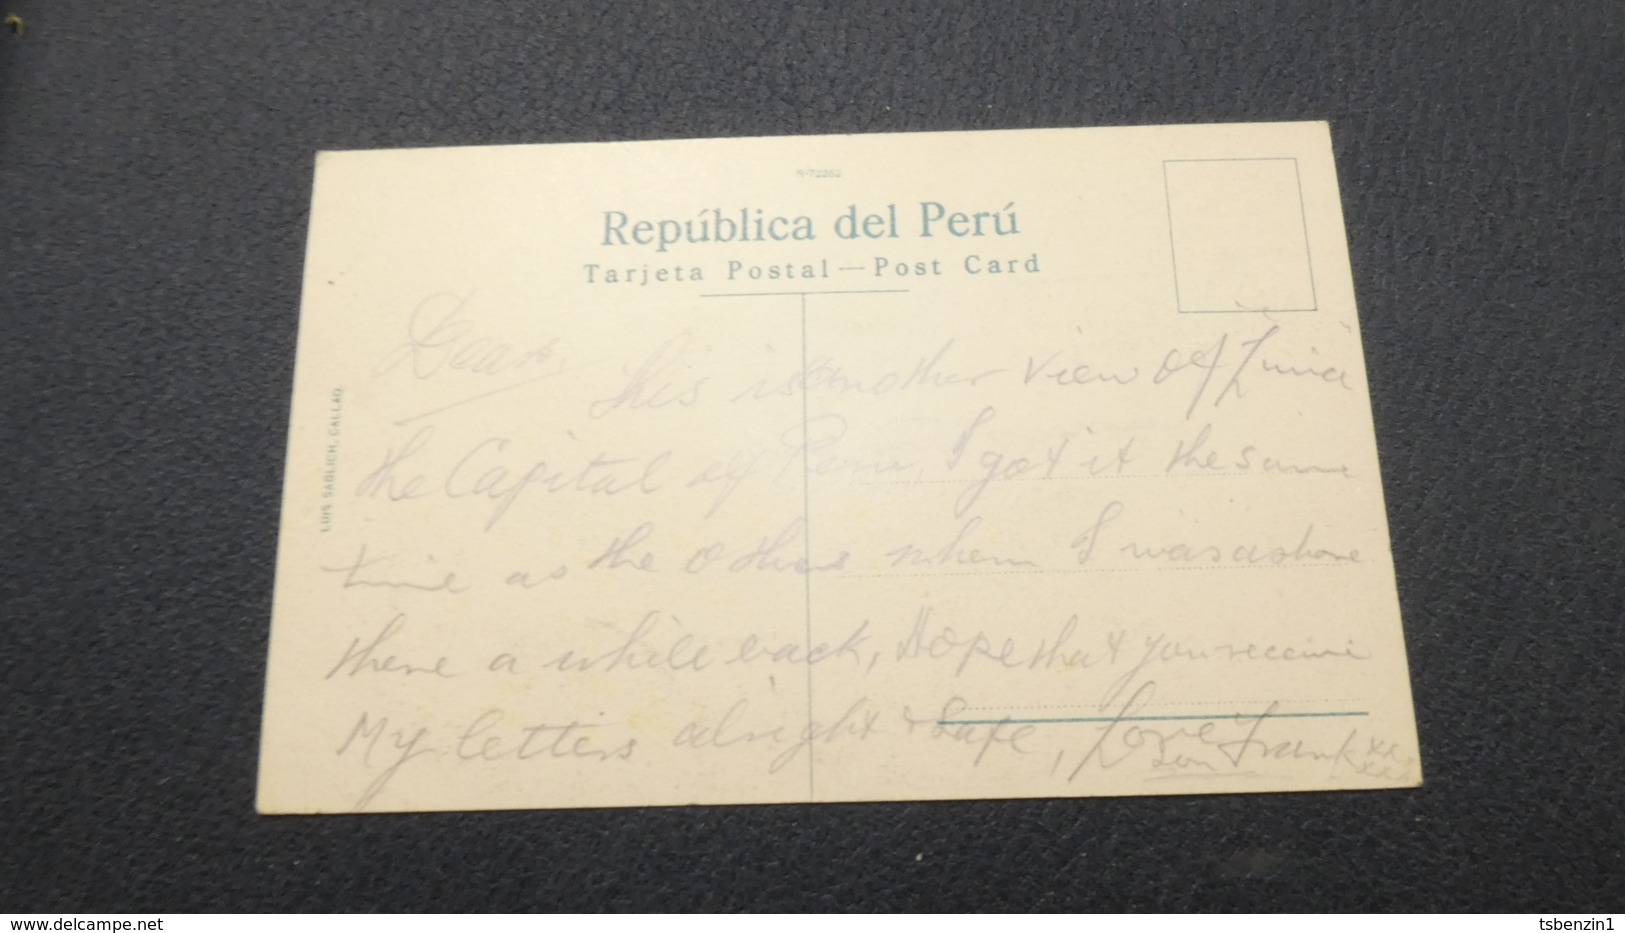 R-72262
República del Perú
Tarjeta Postal — Post Card
LUIS SABLICH, CALLAO.
This is another view of Lima
the Capital of Peru, I got it the same
time as the others when I was ashore
there a while back, Hope that you receive
My letters alright & safe, Love
Son Frank xx
xxx
www.delcampe.net
tsbenzin1